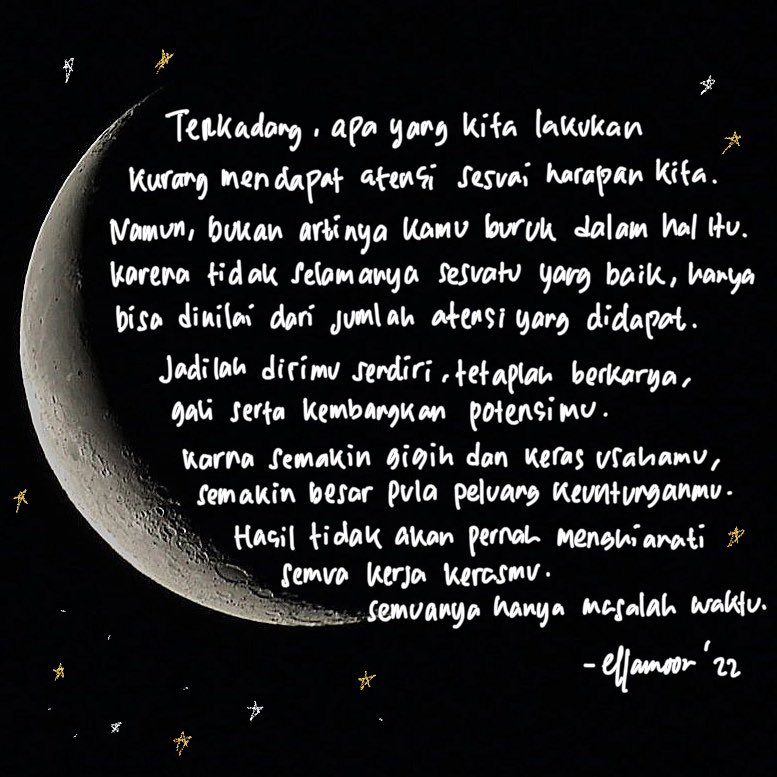 Terkadang, apa yang kita lakukan
kurang mendapat atensi sesuai harapan kita.
Namun, bukan artinya kamu buruk dalam hal itu.
karena tidak selamanya sesuatu yang baik, hanya
bisa dinilai dari jumlah atensi yang didapat.
Jadilah dirimu sendiri, tetaplah berkarya,
gali serta kembangkan potensimu.
karna semakin gigih dan keras usahamu,
semakin besar pula peluang keuntunganmu.
Hasil tidak akan pernah menghianati
semua kerja kerasmu.
semuanya hanya masalah waktu.
'22